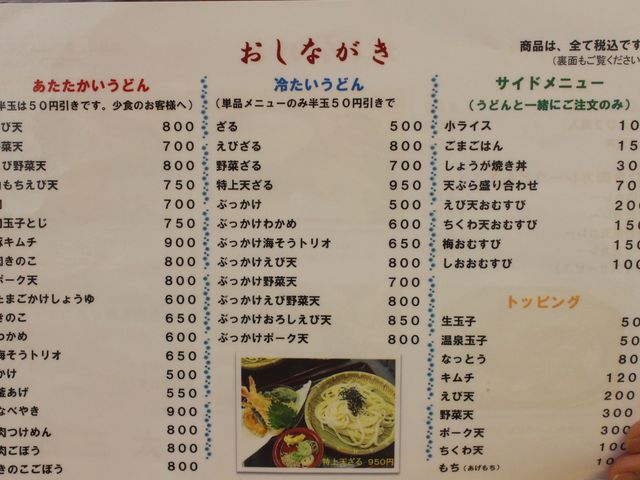 おしながき
商品は、全て税込です
(裏面もご覧ください
あたたかいうどん
半玉は50円引きです。少食のお客様へ)
び天 800
菜天 700
び野菜天 800
もちえび天 750
700
玉子とじ 750
キムチ 900
きのこ 800
ポーク天 800
たまごかけしょうゆ 600
きのこ 650
わかめ 600
海そうトリオ 650
かけ 500
釜あげ 550
なべやき 900
肉つけめん 800
肉ごぼう 800
きのこごぼう 800
冷たいうどん
(単品メニューのみ半玉50円引きで
ざる 500
えびざる 800
野菜ざる 700
特上天ざる 950
ぶっかけ 500
ぶっかけわかめ 600
ぶっかけ海そうトリオ 650
ぶっかけえび天 800
ぶっかけ野菜天 700
ぶっかけえび野菜天 800
ぶっかけおろしえび天 850
ぶっかけポーク天 800
特上天ざる 950円
サイドメニュー
(うどんと一緒にご注文のみ)
小ライス 10
ごまごはん 15
しょうが焼き丼 30
天ぷら盛り合わせ 70
えび天おむすび 200
ちくわ天おむすび 150
梅おむすび 150
しおおむすび 100
トッピング
生玉子 50
温泉玉子 50
なっとう 80
キムチ 120
えび天 200
野菜天 300
ポーク天 300
ちくわ天 100
もち(あげもち) 10